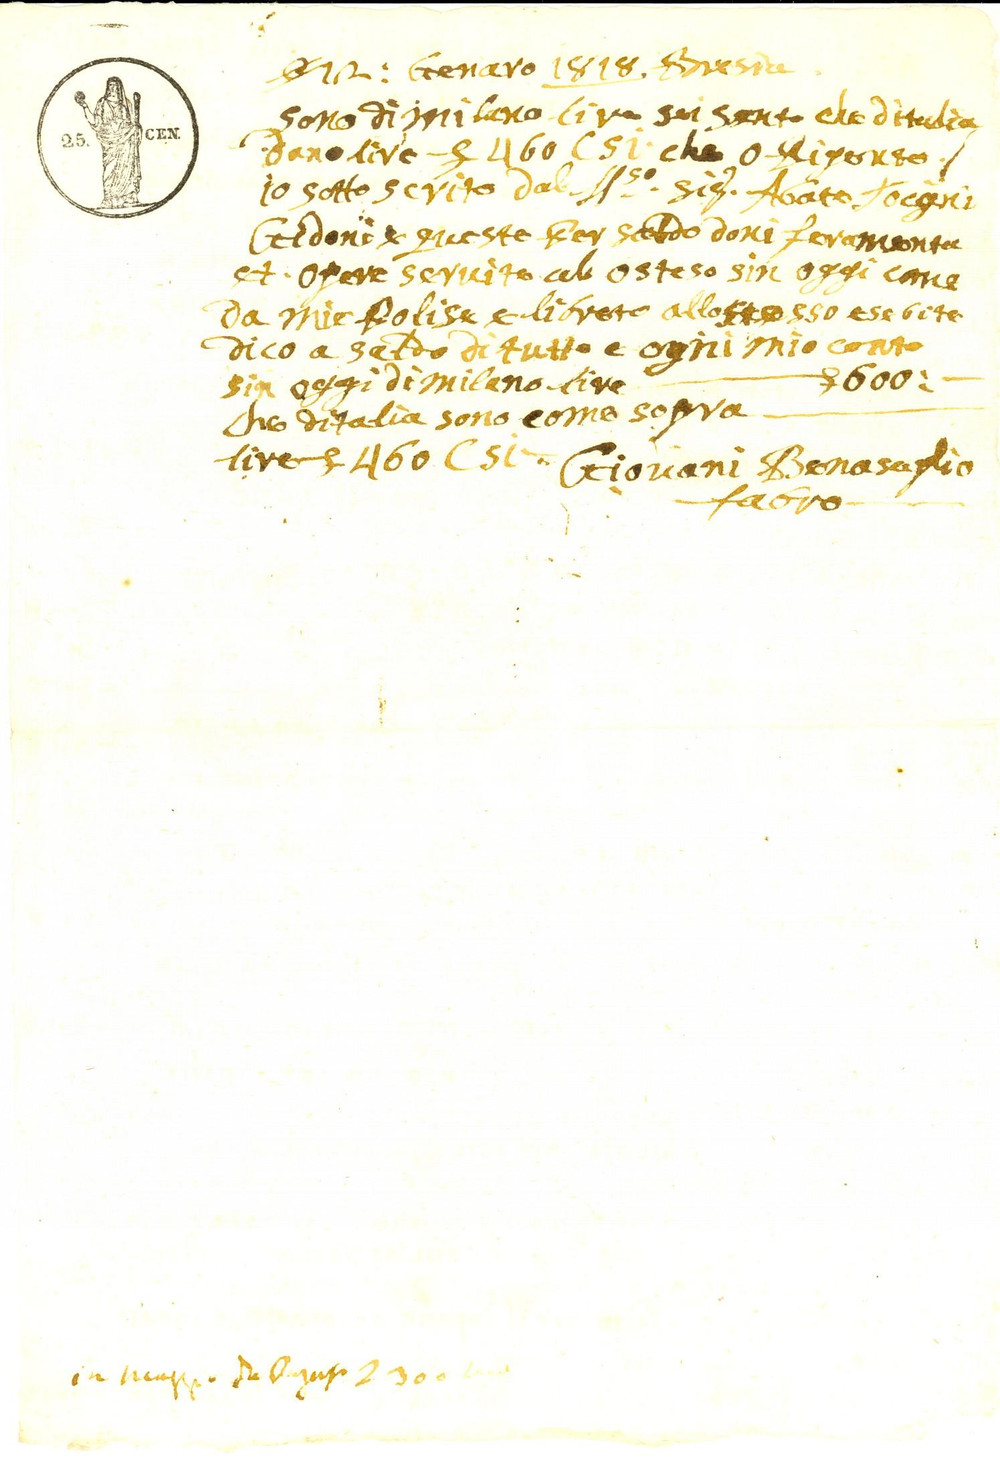 25. CEN.
12: Genaro 1818. Bresia
sono di milano lire sei sento che ditalia
dano lire £ 460 C 51 che o Riceuto
io sotto scrito dal sig.r Abate Tocgni
e queste per saldo doni feramenta
et opere seruite ab osteso sin oggi come
da mie Polise e libreto allo stesso esebite
dico a saldo di tutto e ogni mio conto
sin oggi di milano lire £ 600:
che ditalia sono come sopra
lire £ 460 C 51 Giovani Benasaglio
fabro
in 300